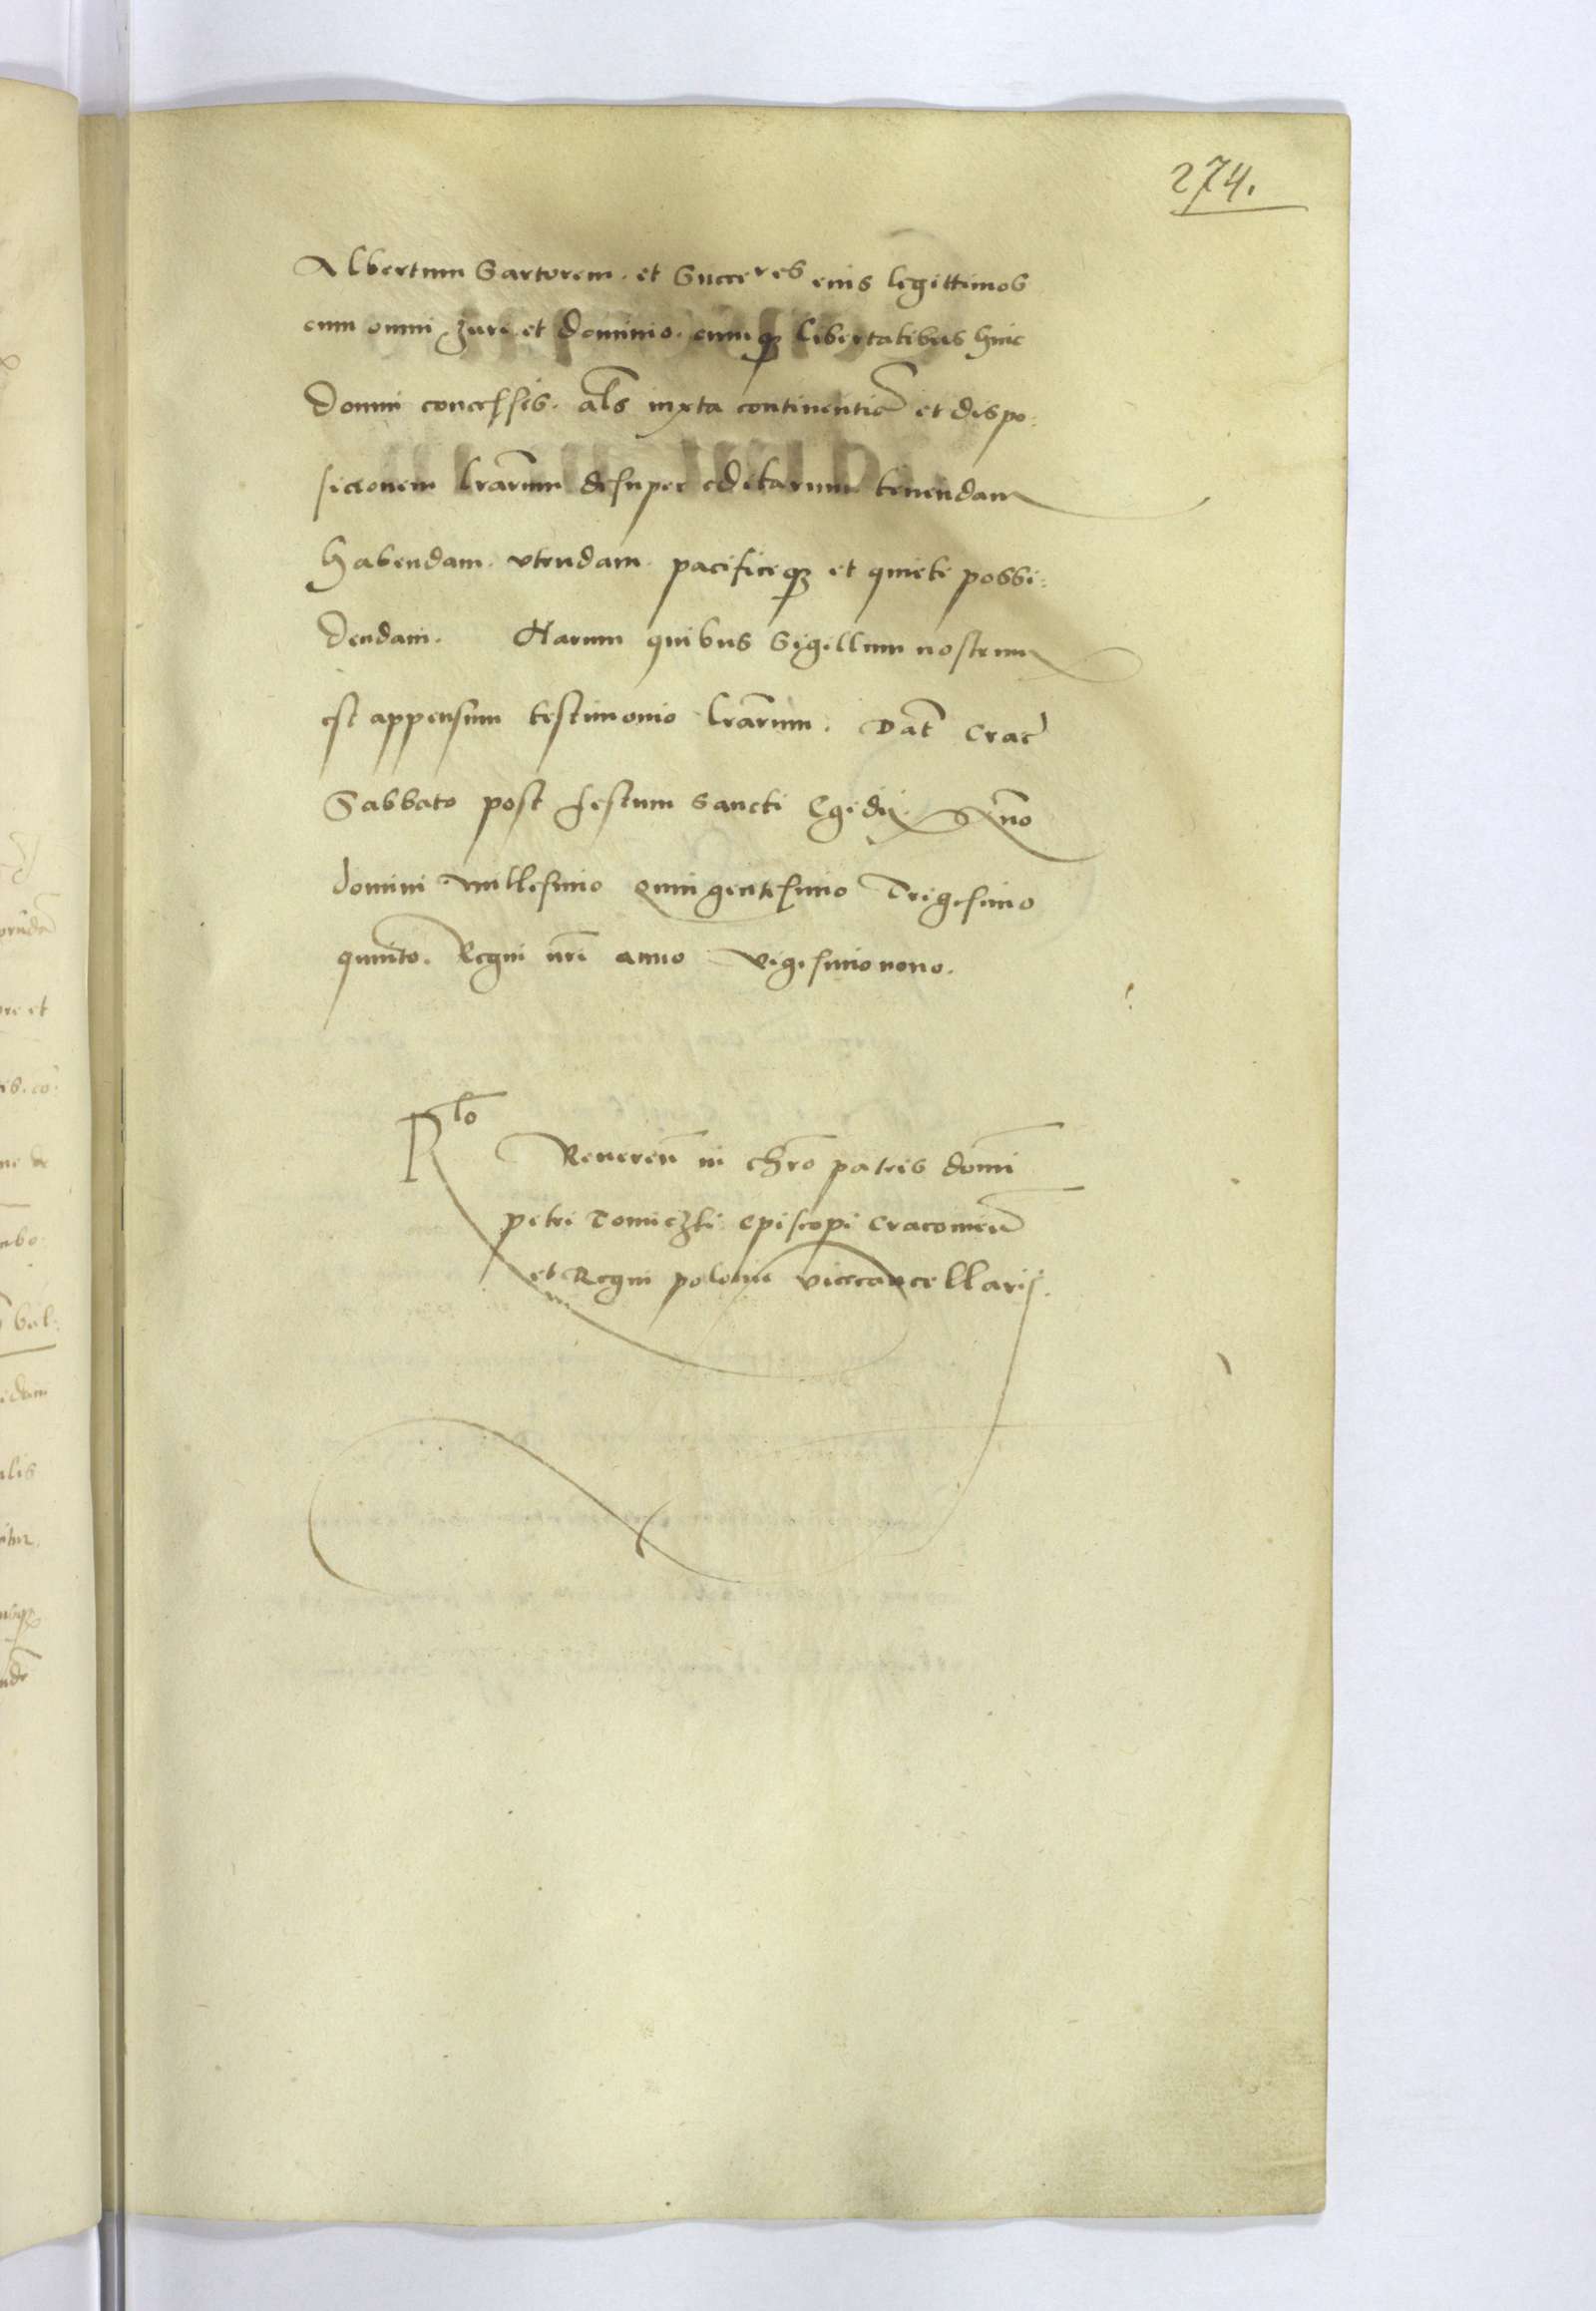 274.
Albertum Sartorem. et Succeres eius legittimos
cum omni Jure et dominio. cumq₃ libertatibus huic
domui concessis. als̄ iuxta continentiā et dispo:
sicionem lrārum desuper editarum tenendam
habendam. vtendam. pacificeq₃ et quiete possi:
dendam. Harum quibus Sigillum nostrum
est appensum testimonio lrārum. Dat̄ Crac̄
Sabbato post festum Sancti Egidij. Anno
domini millesimo quingentesimo Trigesimo
quinto. Regni nrī anno vigesimonono.
Rlō
Reueren̄ in chrō patris domī
petri Tomiczki Episcopi Cracouien̄
et Regni polonie vicecancellarij.